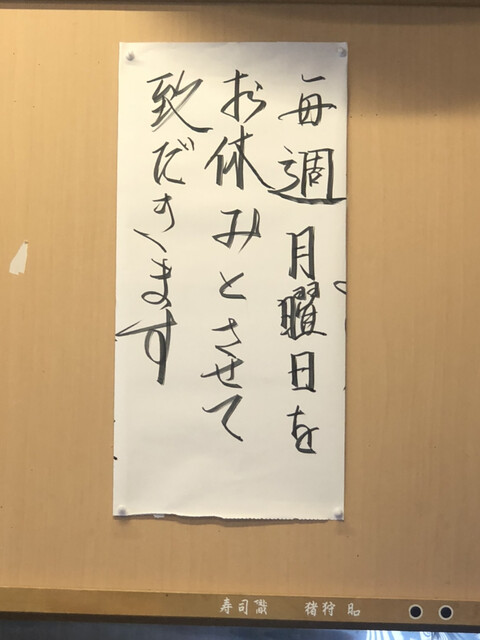 毎週月曜日を
お休みとさせて
致だきます
寿司 猪狩